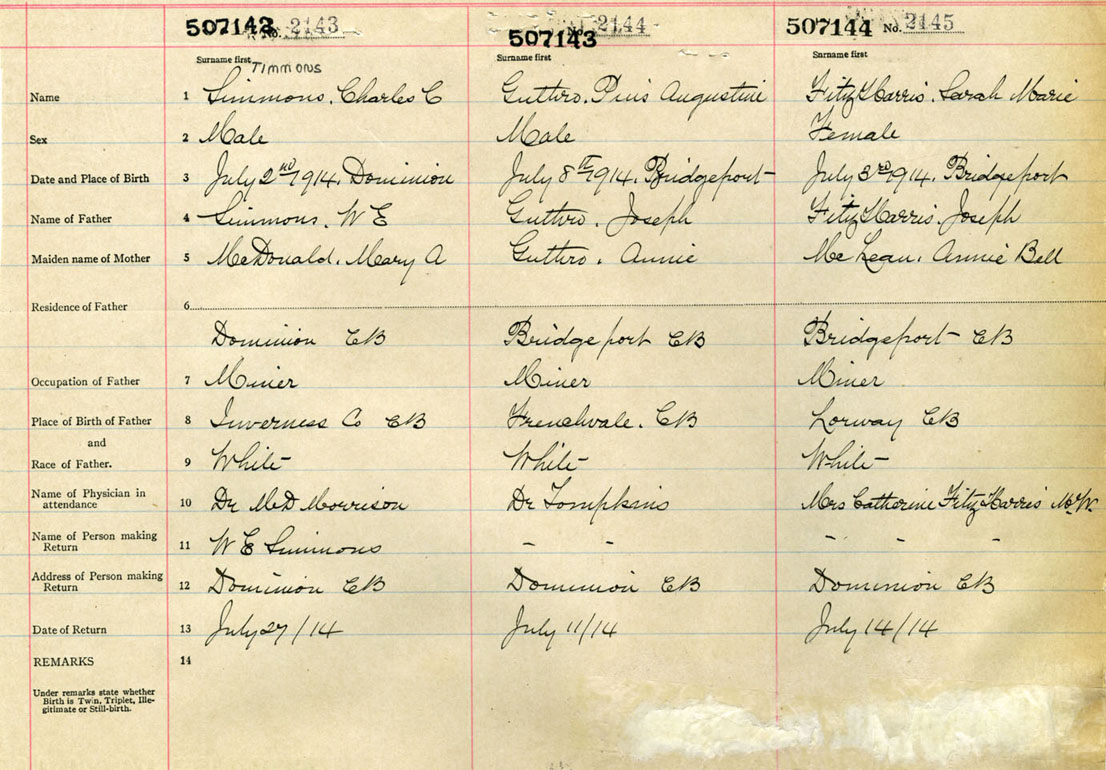 507142 No. 2143 507143 No. 2144 507144 No. 2145
Surname first TIMMONS Surname first Surname first
Name 1 Simmons, Charles C Guthro, Pius Augustine FitzHarris, Sarah Marie
Sex 2 Male Male Female
Date and Place of Birth 3 July 2nd 1914, Dominion July 8th 1914, Bridgeport July 3rd 1914, Bridgeport
Name of Father 4 Simmons, W E Guthro, Joseph FitzHarris, Joseph
Maiden name of Mother 5 McDonald, Mary A Guthro, Annie McLean, Annie Bell
Residence of Father 6
Dominion CB Bridgeport CB Bridgeport CB
Occupation of Father 7 Miner Miner Miner
Place of Birth of Father 8 Inverness Co CB Frenchvale, CB Lorway CB
and
Race of Father. 9 White White White
Name of Physician in
attendance 10 Dr McD Morrison Dr Tompkins Mrs Catherine FitzHarris M.W.
Name of Person making
Return 11 W E Simmons - - - - -
Address of Person making
Return 12 Dominion CB Dominion CB Dominion CB
Date of Return 13 July 27/14 July 11/14 July 14/14
REMARKS 14
Under remarks state whether
Birth is Twin, Triplet, Ille-
gitimate or Still-birth.